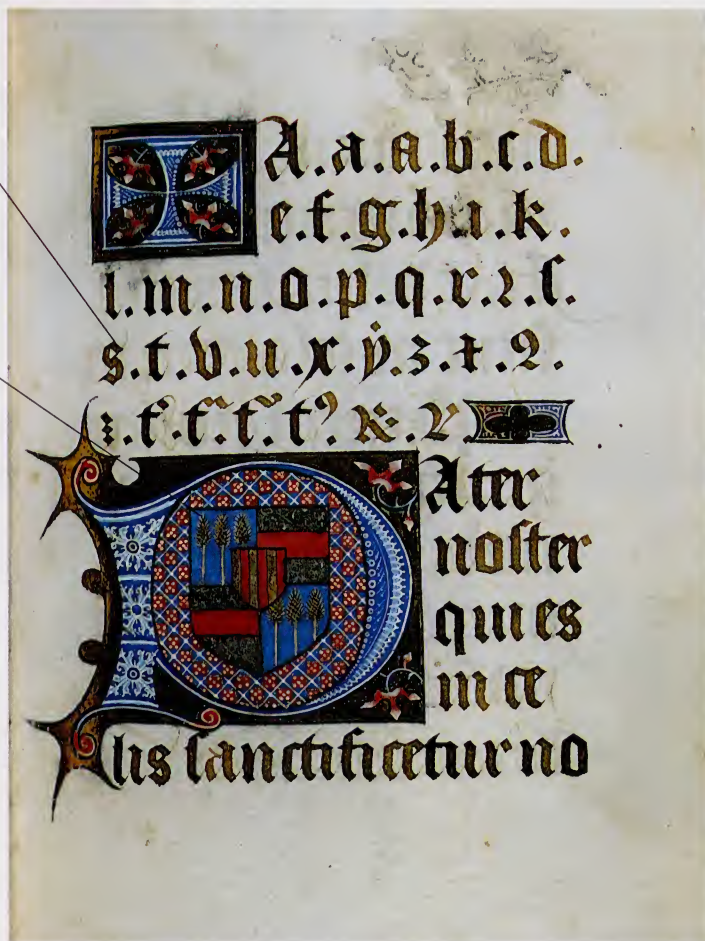 A.a.a.b.c.d.
e.f.g.h.i.k.
l.m.n.o.p.q.r.ꝛ.ſ.
s.t.v.u.x.ẏ.z.
&.
Ater
noſter
qui es
in ce
lis ſanctificetur no